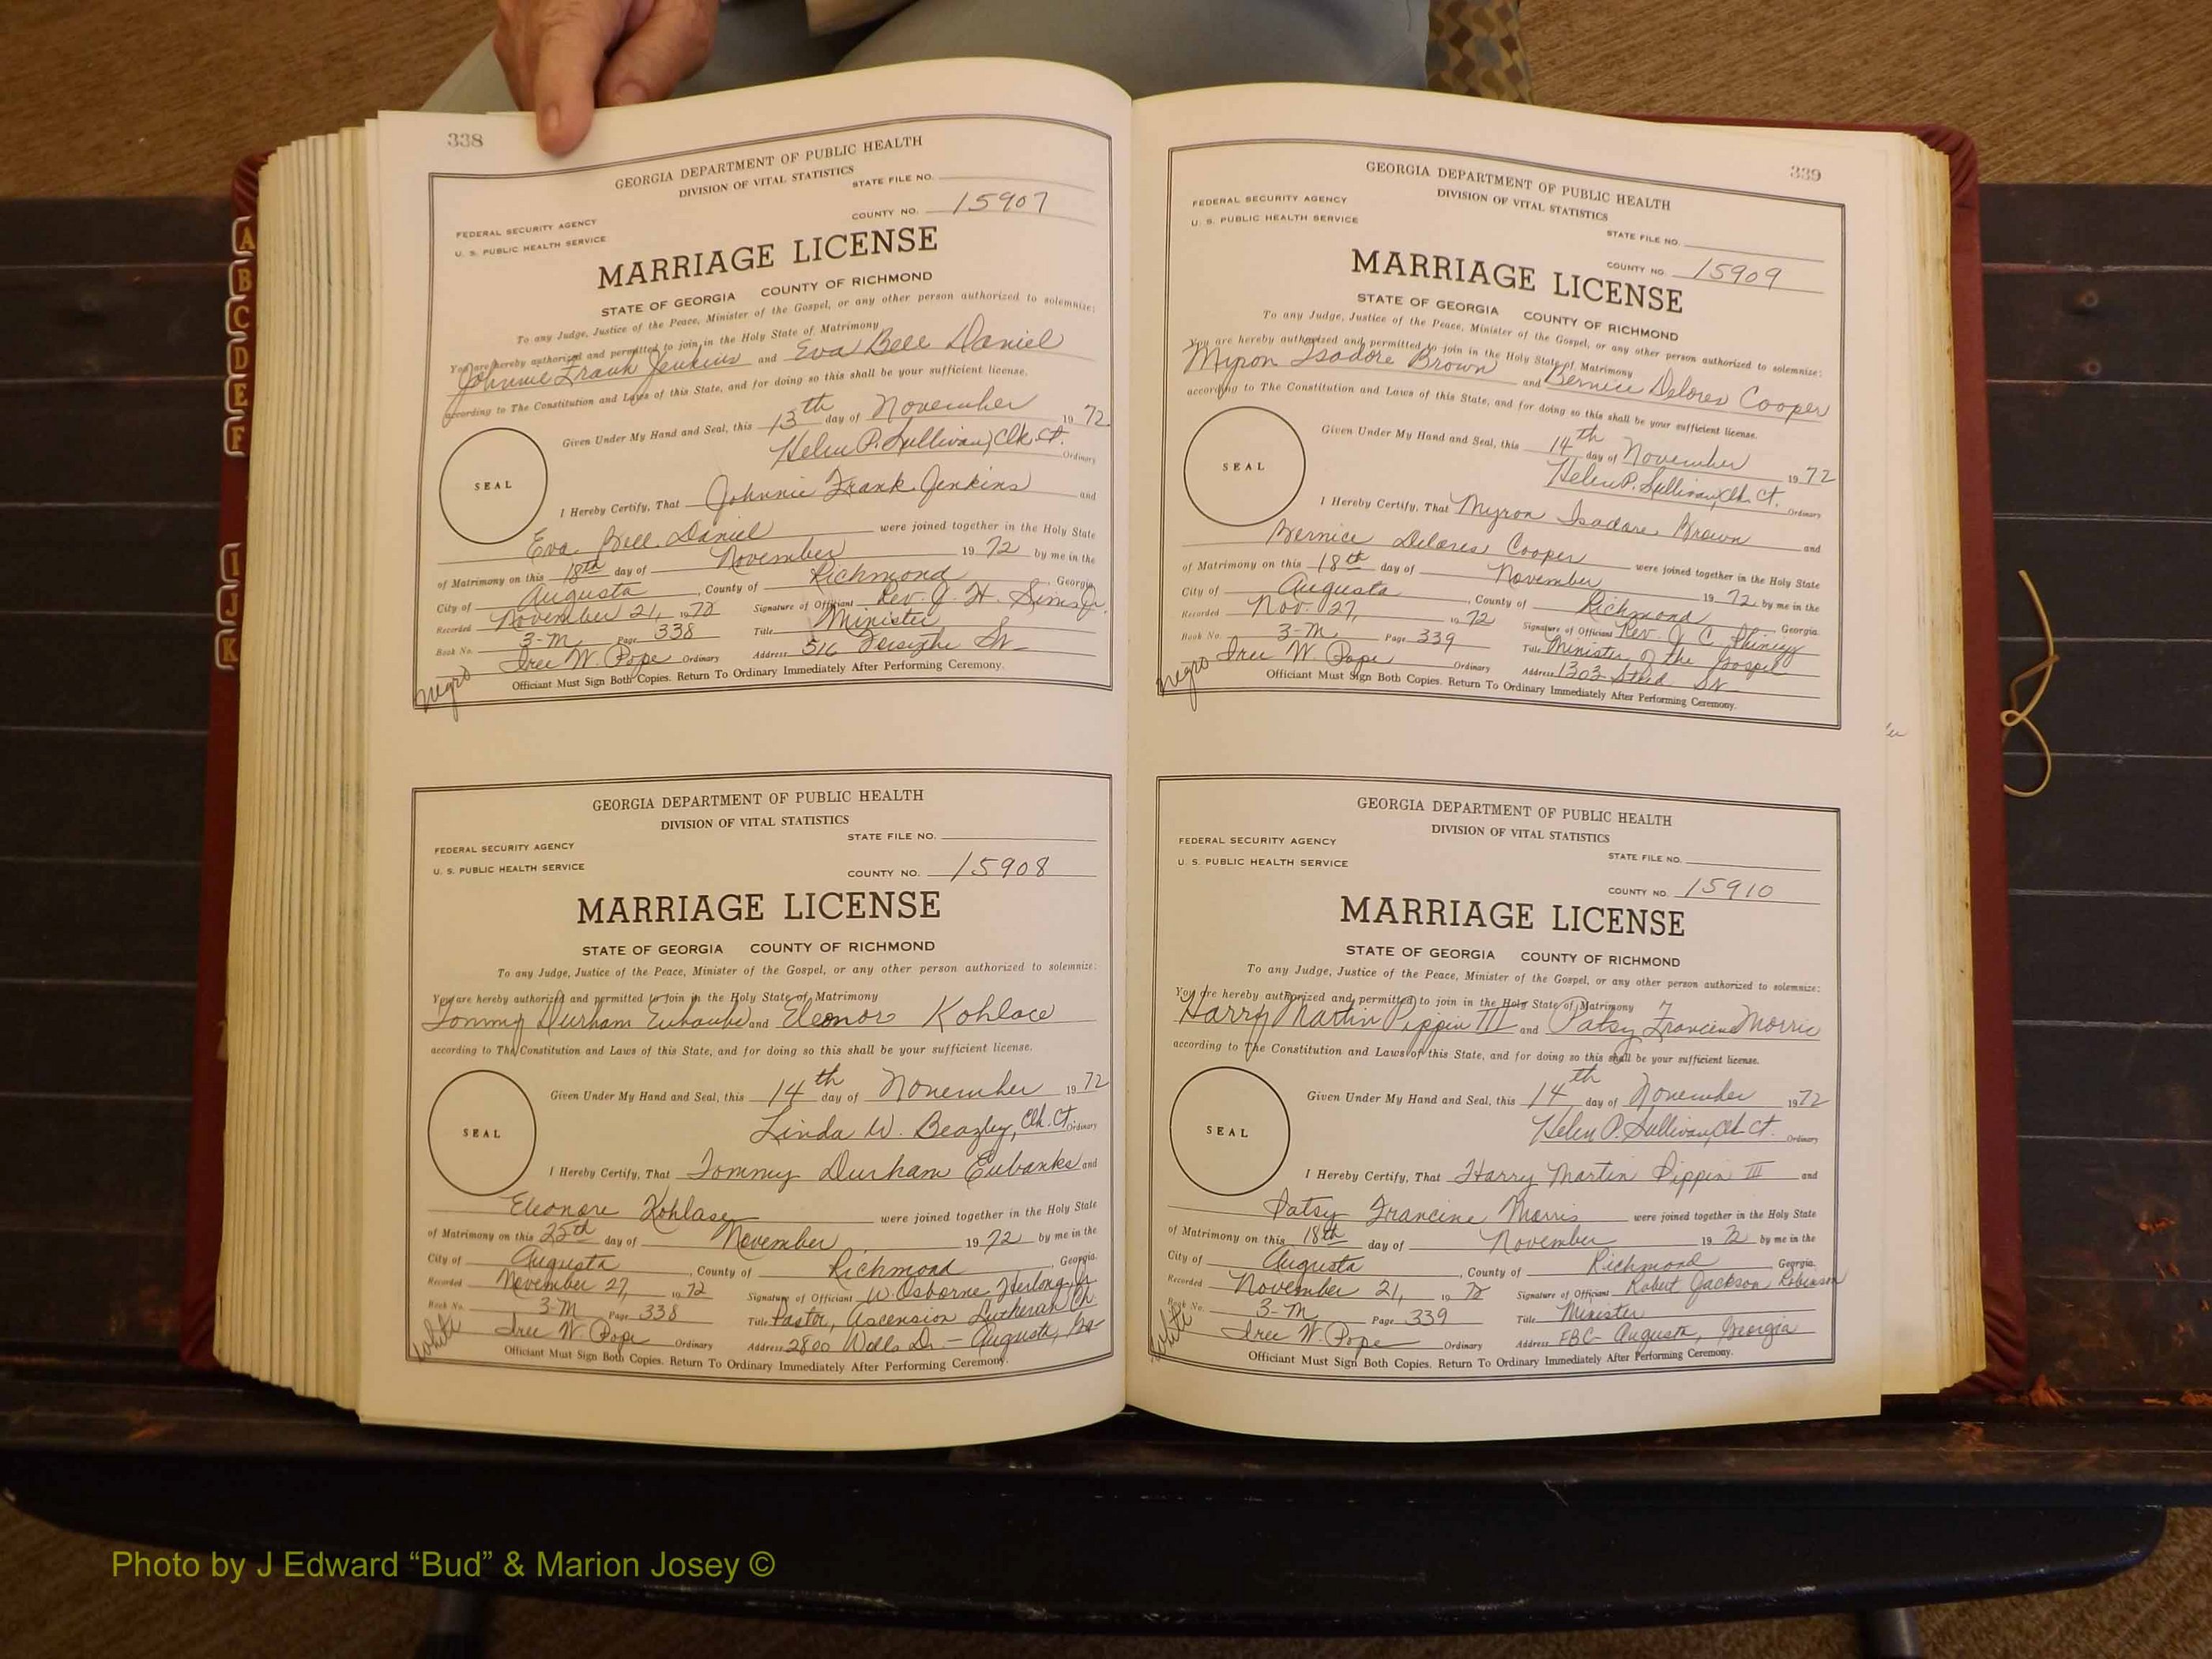 338
GEORGIA DEPARTMENT OF PUBLIC HEALTH
DIVISION OF VITAL STATISTICS
STATE FILE NO.
FEDERAL SECURITY AGENCY
U. S. PUBLIC HEALTH SERVICE
COUNTY NO. 15907
MARRIAGE LICENSE
STATE OF GEORGIA COUNTY OF RICHMOND
To any Judge, Justice of the Peace, Minister of the Gospel, or any other person authorized to solemnize:
You are hereby authorized and permitted to join in the Holy State of Matrimony
Johnnie Frank Jenkins and Eva Bell Daniel
according to The Constitution and Laws of this State, and for doing so this shall be your sufficient license.
Given Under My Hand and Seal, this 13th day of November 1972
Helen P. Sullivan, Clk. Ct. Ordinary
SEAL
I Hereby Certify, That Johnnie Frank Jenkins and
Eva Bell Daniel were joined together in the Holy State
of Matrimony on this 18th day of November 1972 by me in the
City of Augusta, County of Richmond, Georgia
Recorded November 21, 1972 Signature of Officiant Rev. J. H. Sims Jr.
Book No. 3-M Page 338 Title Minister
Iree W. Pope Ordinary Address 516 St
Officiant Must Sign Both Copies. Return To Ordinary Immediately After Performing Ceremony.
negro
GEORGIA DEPARTMENT OF PUBLIC HEALTH
DIVISION OF VITAL STATISTICS
STATE FILE NO.
FEDERAL SECURITY AGENCY
U. S. PUBLIC HEALTH SERVICE
COUNTY NO. 15908
MARRIAGE LICENSE
STATE OF GEORGIA COUNTY OF RICHMOND
To any Judge, Justice of the Peace, Minister of the Gospel, or any other person authorized to solemnize:
You are hereby authorized and permitted to join in the Holy State of Matrimony
Tommy Durham Eubanks and Eleonor Kohlace
according to The Constitution and Laws of this State, and for doing so this shall be your sufficient license.
Given Under My Hand and Seal, this 14th day of November 1972
Linda W. Beazley, Clk. Ct. Ordinary
SEAL
I Hereby Certify, That Tommy Durham Eubanks and
Eleonore Kohlase were joined together in the Holy State
of Matrimony on this 25th day of November 1972 by me in the
City of Augusta, County of Richmond, Georgia.
Recorded November 27, 1972 Signature of Officiant W. Osborne Herlong, Jr.
Book No. 3-M Page 338 Title Pastor, Ascension Lutheran Ch.
Iree W. Pope Ordinary Address 2800 Walls Dr. - Augusta, Ga
Officiant Must Sign Both Copies. Return To Ordinary Immediately After Performing Ceremony.
white
339
GEORGIA DEPARTMENT OF PUBLIC HEALTH
DIVISION OF VITAL STATISTICS
FEDERAL SECURITY AGENCY
U. S. PUBLIC HEALTH SERVICE
STATE FILE NO.
COUNTY NO. 15909
MARRIAGE LICENSE
STATE OF GEORGIA COUNTY OF RICHMOND
To any Judge, Justice of the Peace, Minister of the Gospel, or any other person authorized to solemnize:
You are hereby authorized and permitted to join in the Holy State of Matrimony
Myron Isadore Brown and Bernice Delores Cooper
according to The Constitution and Laws of this State, and for doing so this shall be your sufficient license.
Given Under My Hand and Seal, this 14th day of November 1972
Helen P. Sullivan, Clk. Ct. Ordinary
SEAL
I Hereby Certify, That Myron Isadore Brown and
Bernice Delores Cooper were joined together in the Holy State
of Matrimony on this 18th day of November 1972 by me in the
City of Augusta, County of Richmond, Georgia.
Recorded Nov. 27, 1972 Signature of Officiant Rev. J. C.
Book No. 3-M Page 339 Title Minister of the Gospel
Iree W Pope Ordinary Address 1303 St
Officiant Must Sign Both Copies. Return To Ordinary Immediately After Performing Ceremony.
negro
GEORGIA DEPARTMENT OF PUBLIC HEALTH
DIVISION OF VITAL STATISTICS
FEDERAL SECURITY AGENCY
U. S. PUBLIC HEALTH SERVICE
STATE FILE NO.
COUNTY NO. 15910
MARRIAGE LICENSE
STATE OF GEORGIA COUNTY OF RICHMOND
To any Judge, Justice of the Peace, Minister of the Gospel, or any other person authorized to solemnize:
You are hereby authorized and permitted to join in the Holy State of Matrimony
Harry Martin Pippin III and Patsy Francine Morris
according to The Constitution and Laws of this State, and for doing so this shall be your sufficient license.
Given Under My Hand and Seal, this 14th day of November 1972
Helen P. Sullivan, Clk. Ct. Ordinary
SEAL
I Hereby Certify, That Harry Martin Pippin III and
Patsy Francine Morris were joined together in the Holy State
of Matrimony on this 18th day of November 1972 by me in the
City of Augusta, County of Richmond, Georgia.
Recorded November 21, 1972 Signature of Officiant Robert Jackson Robinson
Book No. 3-M Page 339 Title Minister
Iree W. Pope Ordinary Address FBC- Augusta, Georgia
Officiant Must Sign Both Copies. Return To Ordinary Immediately After Performing Ceremony.
white
A
B
C
D
E
F
I
J
K
Photo by J Edward “Bud” & Marion Josey ©